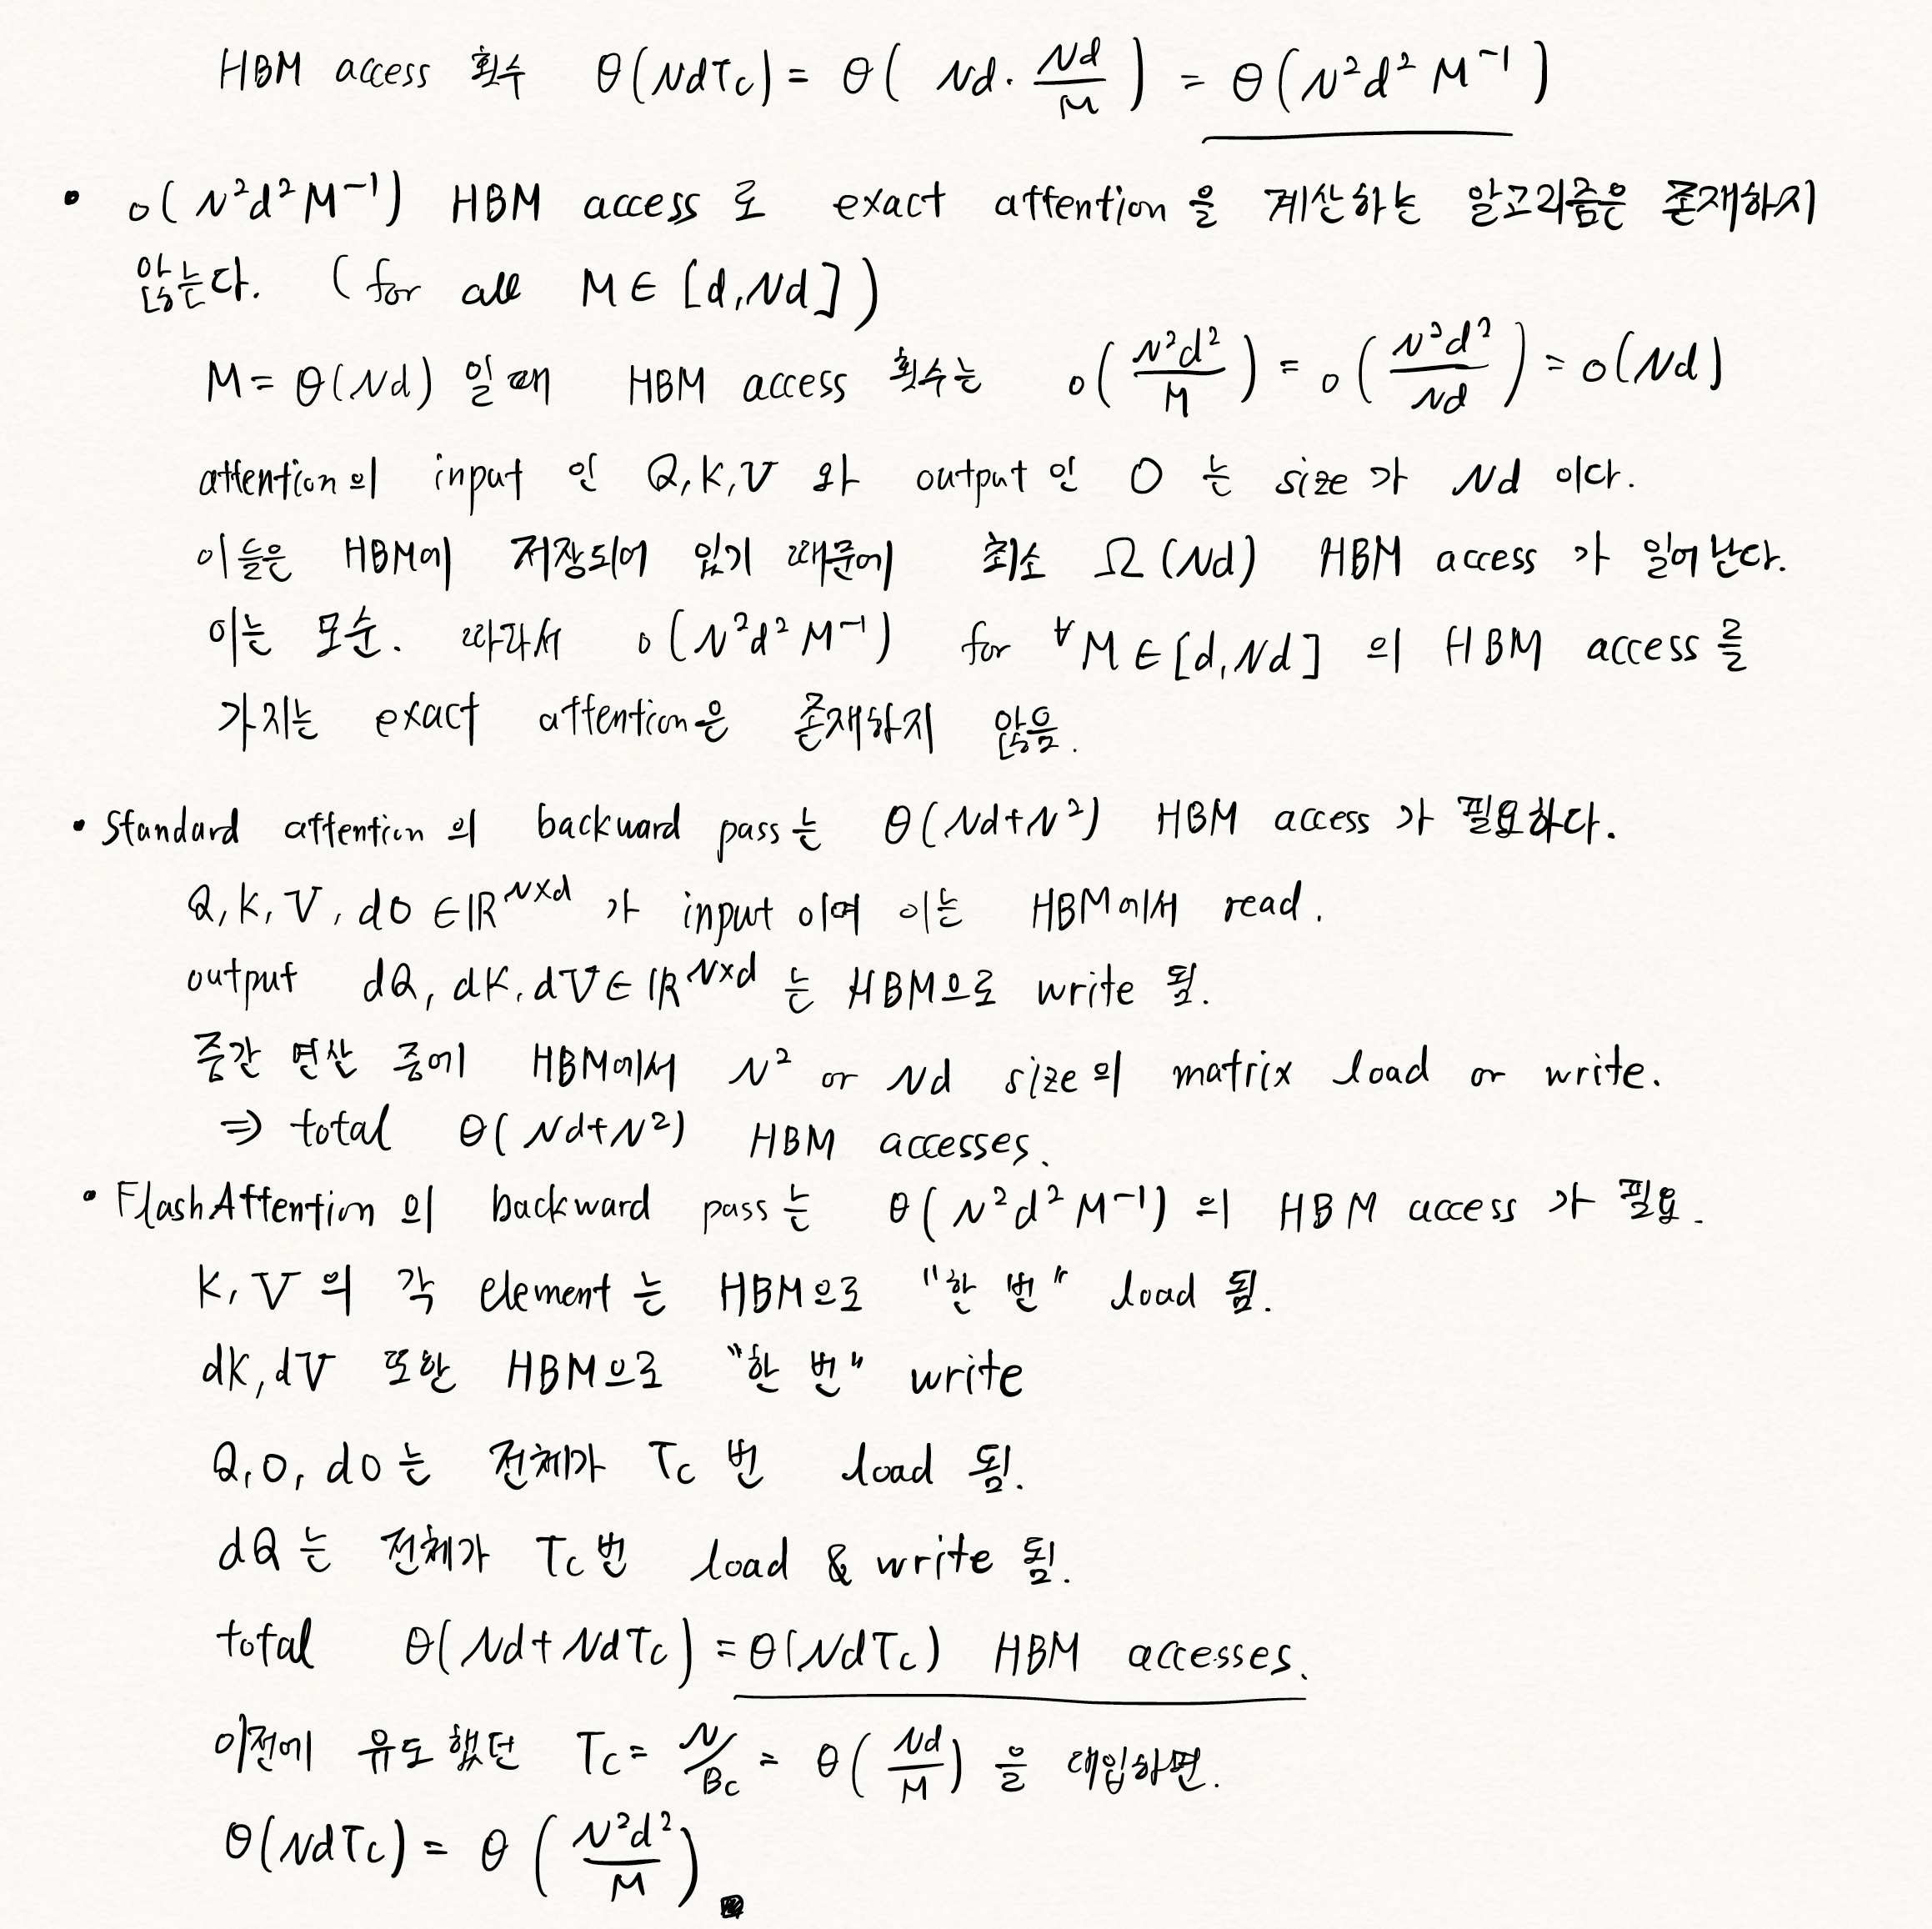 HBM access 횟수 θ(NdTc) = θ( Nd · Nd/M ) = θ(N²d²M⁻¹)
• o(N²d²M⁻¹) HBM access 로 exact attention을 계산하는 알고리즘은 존재하지
않는다. (for all M ∈ [d, Nd])
M = θ(Nd) 일 때 HBM access 횟수는 o(N²d²/M) = o(N²d²/Nd) = o(Nd)
attention의 input 인 Q, K, V 와 output 인 O 는 size 가 Nd 이다.
이들은 HBM에 저장되어 있기 때문에 최소 Ω(Nd) HBM access 가 일어난다.
이는 모순. 따라서 o(N²d²M⁻¹) for ∀M ∈ [d, Nd] 의 HBM access를
가지는 exact attention은 존재하지 않음.
• Standard attention 의 backward pass는 θ(Nd+N²) HBM access 가 필요하다.
Q, K, V, dO ∈ ℝ^{N×d} 가 input 이며 이는 HBM에서 read.
output dQ, dK, dV ∈ ℝ^{N×d} 는 HBM으로 write 됨.
중간 연산 중에 HBM에서 N² or Nd size의 matrix load or write.
⇒ total θ(Nd+N²) HBM accesses.
• FlashAttention 의 backward pass는 θ(N²d²M⁻¹) 의 HBM access 가 필요.
K, V 의 각 element 는 HBM으로 "한 번" load 됨.
dK, dV 또한 HBM으로 "한 번" write
Q, O, dO는 전체가 Tc 번 load 됨.
dQ 는 전체가 Tc 번 load & write 됨.
total θ(Nd + NdTc) = θ(NdTc) HBM accesses.
이전에 유도했던 Tc = N/Bc = θ(Nd/M) 을 대입하면.
θ(NdTc) = θ(N²d²/M). ■